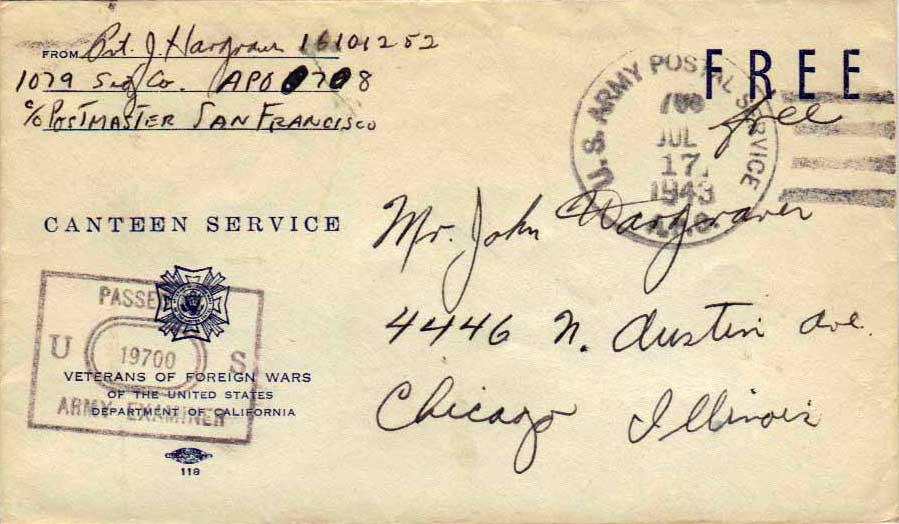 FROM Pvt. J. Hargraver 16101252
1079 Sig Co. APO 708
c/o POSTMASTER SAN FRANCISCO
FREE
free
U.S. ARMY POSTAL SERVICE
JUL
17
1943
CANTEEN SERVICE
Mr. John Wargraver
4446 N. Austin Ave.
Chicago Illinois
PASSE
U 19700 S
ARMY EXAMINER
VETERANS OF FOREIGN WARS
OF THE UNITED STATES
DEPARTMENT OF CALIFORNIA
118